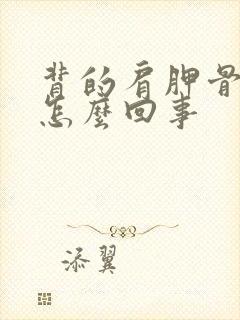 背的肩胛骨
怎麼回事
添翼